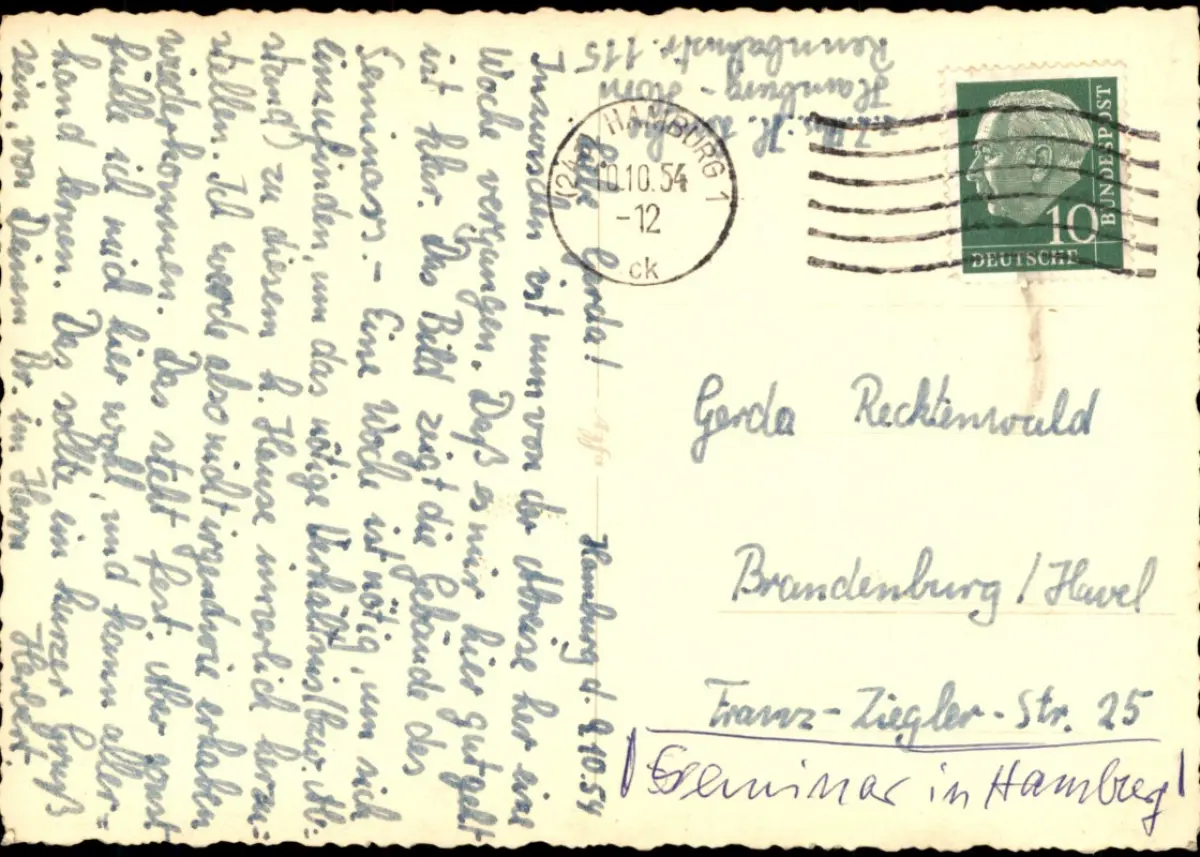 Hamburg d. 9.10.54
Liebe Gerda!
Inzwischen ist nun von der Abreise her eine
Woche vergangen. Daß es mir hier gut geht
ist klar. Das Bild zeigt die Gebäude des
Seminars. - Eine Woche ist nötig, um sich
einzufinden, um das nötige Verhältnis (bzw. Ab=
stand) zu diesem h. Hause innerlich herzu=
stellen. Ich werde also nicht irgendwie erhaben
wiederkommen. Das steht fest. Aber sonst
fühle ich mich hier wohl, und kann aller=
hand lernen. Das sollte ein kurzer Gruß
sein, von Deinem Br. im Herrn
Herbert
Hamburg - Horn
Rennbahnstr. 115
HAMBURG 1
10.10.54
-12
ck
10
DEUTSCHE
BUNDESPOST
Gerda Recktenwald
Brandenburg / Havel
Franz-Ziegler-Str. 25
Seminar in Hambreg